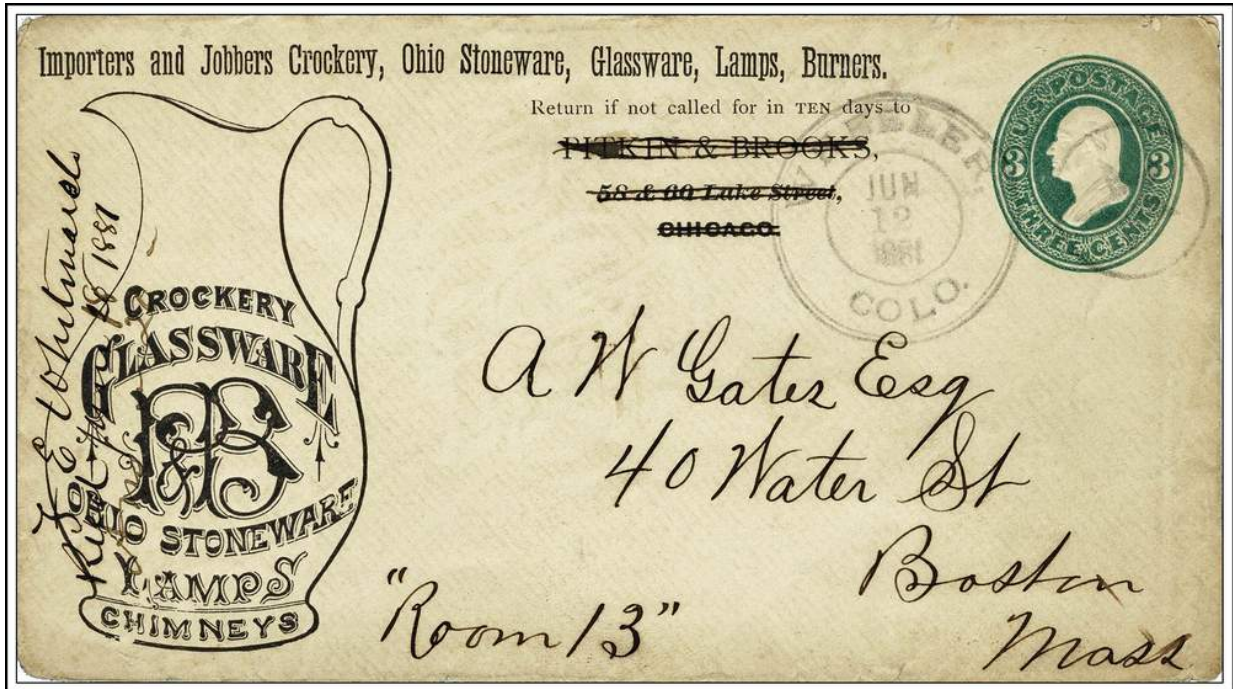 Importers and Jobbers Crockery, Ohio Stoneware, Glassware, Lamps, Burners.
Return if not called for in TEN days to
PITKIN & BROOKS,
58 & 60 Lake Street,
CHICAGO.
WHEELER,
JUN
12
1881
COLO.
U.S. POSTAGE
3 3
THREE CENTS
CROCKERY
GLASSWARE
P&B
OHIO STONEWARE
LAMPS
CHIMNEYS
E Whitmarsh
18 1881
A W Gates Esq
40 Water St
Boston
Mass
"Room 13"